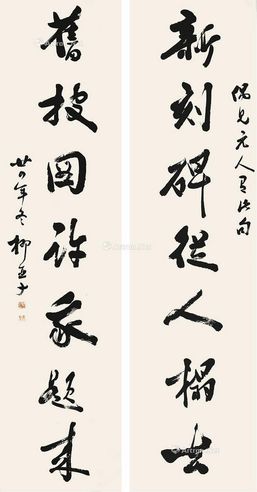 新刻碑從人榻去
偶見元人有此句
舊披圖許我題來
廿四年冬 柳亞子